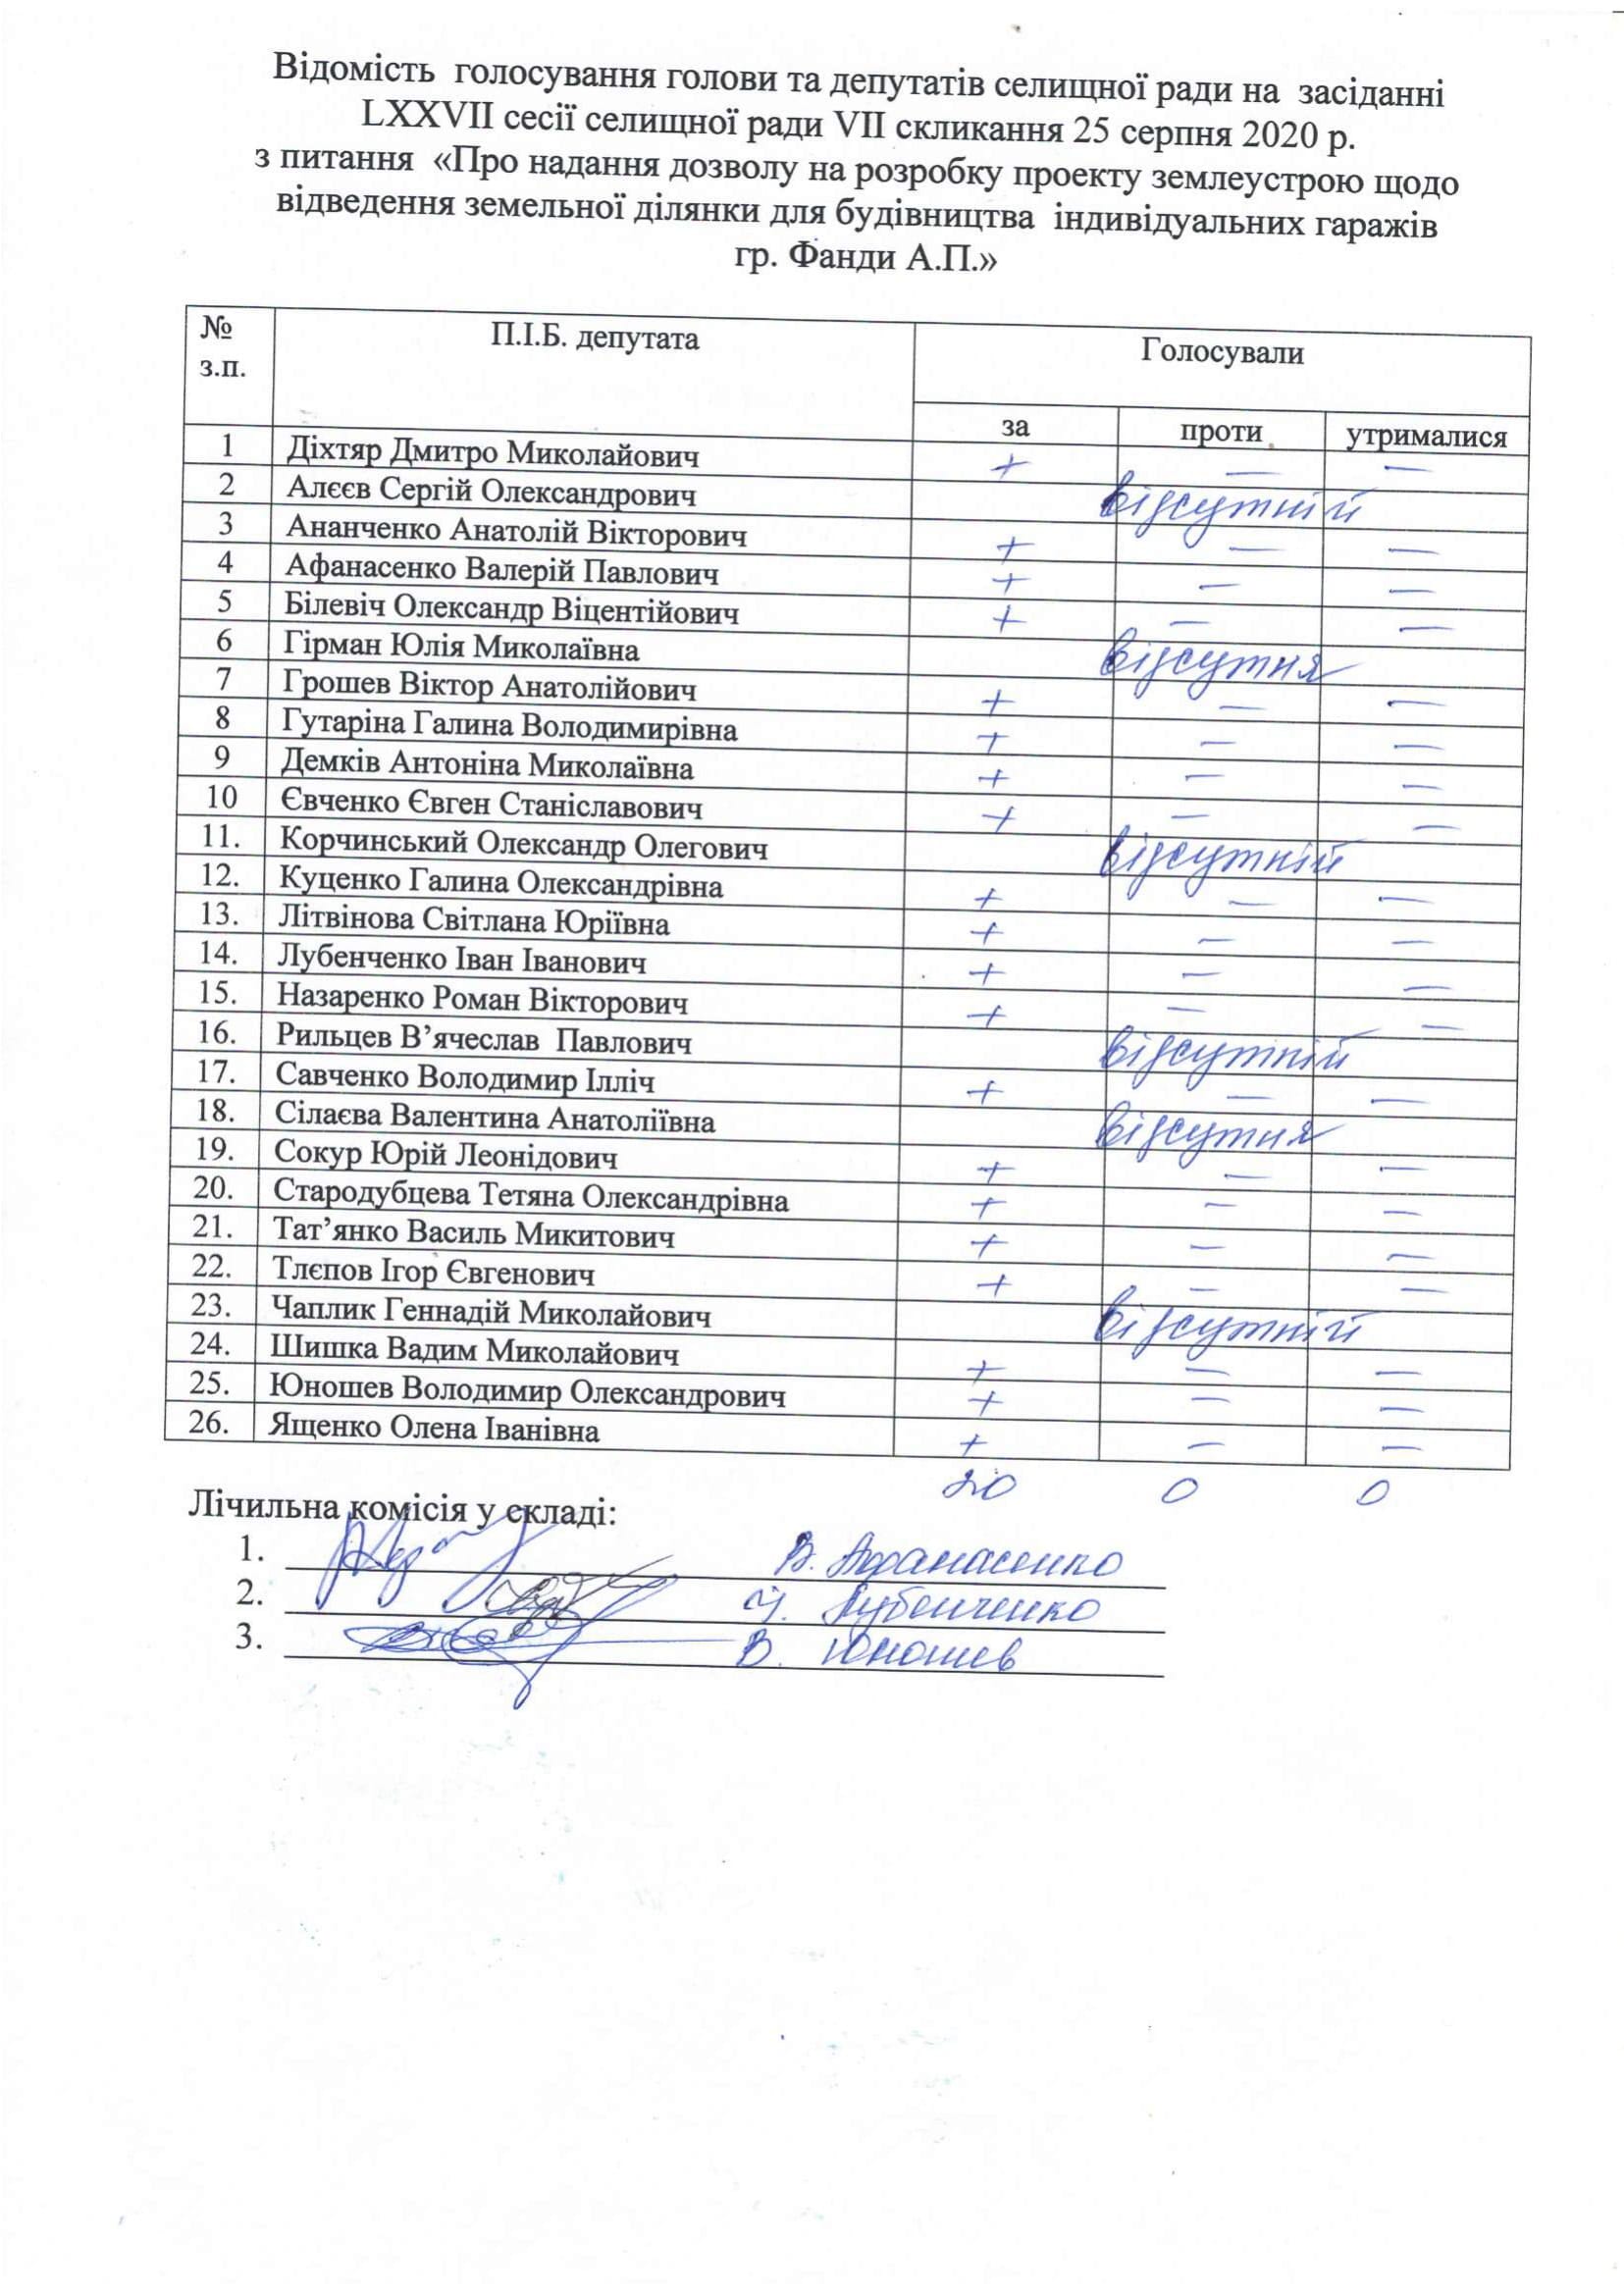 Відомість голосування голови та депутатів селищної ради на засіданні
LXXVII сесії селищної ради VII скликання 25 серпня 2020 р.
з питання «Про надання дозволу на розробку проекту землеустрою щодо
відведення земельної ділянки для будівництва індивідуальних гаражів
гр. Фанди А.П.»
№ з.п. П.І.Б. депутата Голосували
за проти утрималися
1 Діхтяр Дмитро Миколайович + — —
2 Алєєв Сергій Олександрович відсутній
3 Ананченко Анатолій Вікторович + — —
4 Афанасенко Валерій Павлович + — —
5 Білевіч Олександр Віцентійович + — —
6 Гірман Юлія Миколаївна відсутня
7 Грошев Віктор Анатолійович + — —
8 Гутаріна Галина Володимирівна + — —
9 Демків Антоніна Миколаївна + — —
10 Євченко Євген Станіславович + — —
11. Корчинський Олександр Олегович відсутній
12. Куценко Галина Олександрівна + — —
13. Літвінова Світлана Юріївна + — —
14. Лубенченко Іван Іванович + — —
15. Назаренко Роман Вікторович + — —
16. Рильцев В’ячеслав Павлович відсутній
17. Савченко Володимир Ілліч + — —
18. Сілаєва Валентина Анатоліївна відсутня
19. Сокур Юрій Леонідович + — —
20. Стародубцева Тетяна Олександрівна + — —
21. Тат’янко Василь Микитович + — —
22. Тлєпов Ігор Євгенович + — —
23. Чаплик Геннадій Миколайович відсутній
24. Шишка Вадим Миколайович + — —
25. Юношев Володимир Олександрович + — —
26. Ященко Олена Іванівна + — —
20 0 0
Лічильна комісія у складі:
1. В. Афанасенко
2. І. Лубенченко
3. В. Юношев